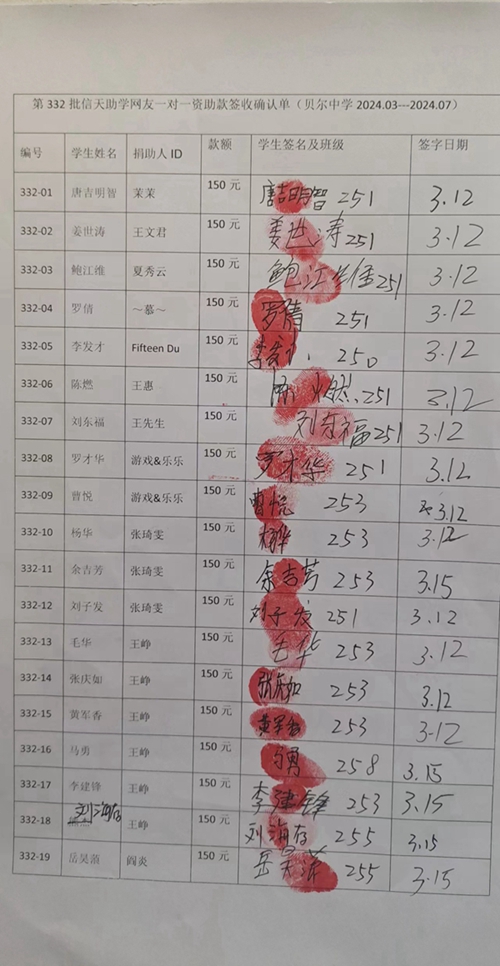 第 332 批信天助学网友一对一资助款签收确认单（贝尔中学 2024.03---2024.07）
编号 学生姓名 捐助人 ID 款额 学生签名及班级 签字日期
332-01 唐吉明智 茉茉 150 元 唐吉明智 251 3.12
332-02 姜世涛 王文君 150 元 姜世涛 251 3.12
332-03 鲍江维 夏秀云 150 元 鲍江维 251 3.12
332-04 罗倩 ～慕～ 150 元 罗倩 251 3.12
332-05 李发才 Fifteen Du 150 元 李发才 250 3.12
332-06 陈燃 王惠 150 元 陈燃 251 3.12
332-07 刘东福 王先生 150 元 刘东福 251 3.12
332-08 罗才华 游戏&乐乐 150 元 罗才华 251 3.12
332-09 曹悦 游戏&乐乐 150 元 曹悦 253 3.12
332-10 杨华 张琦雯 150 元 杨华 253 3.12
332-11 余吉芳 张琦雯 150 元 余吉芳 253 3.15
332-12 刘子发 张琦雯 150 元 刘子发 251 3.12
332-13 毛华 王峥 150 元 毛华 253 3.12
332-14 张庆如 王峥 150 元 张庆如 253 3.12
332-15 黄军香 王峥 150 元 黄军香 253 3.12
332-16 马勇 王峥 150 元 马勇 258 3.15
332-17 李建锋 王峥 150 元 李津锋 253 3.15
332-18 刘海存 王峥 150 元 刘海存 255 3.15
332-19 岳昊 阎炎 150 元 岳昊 255 3.15